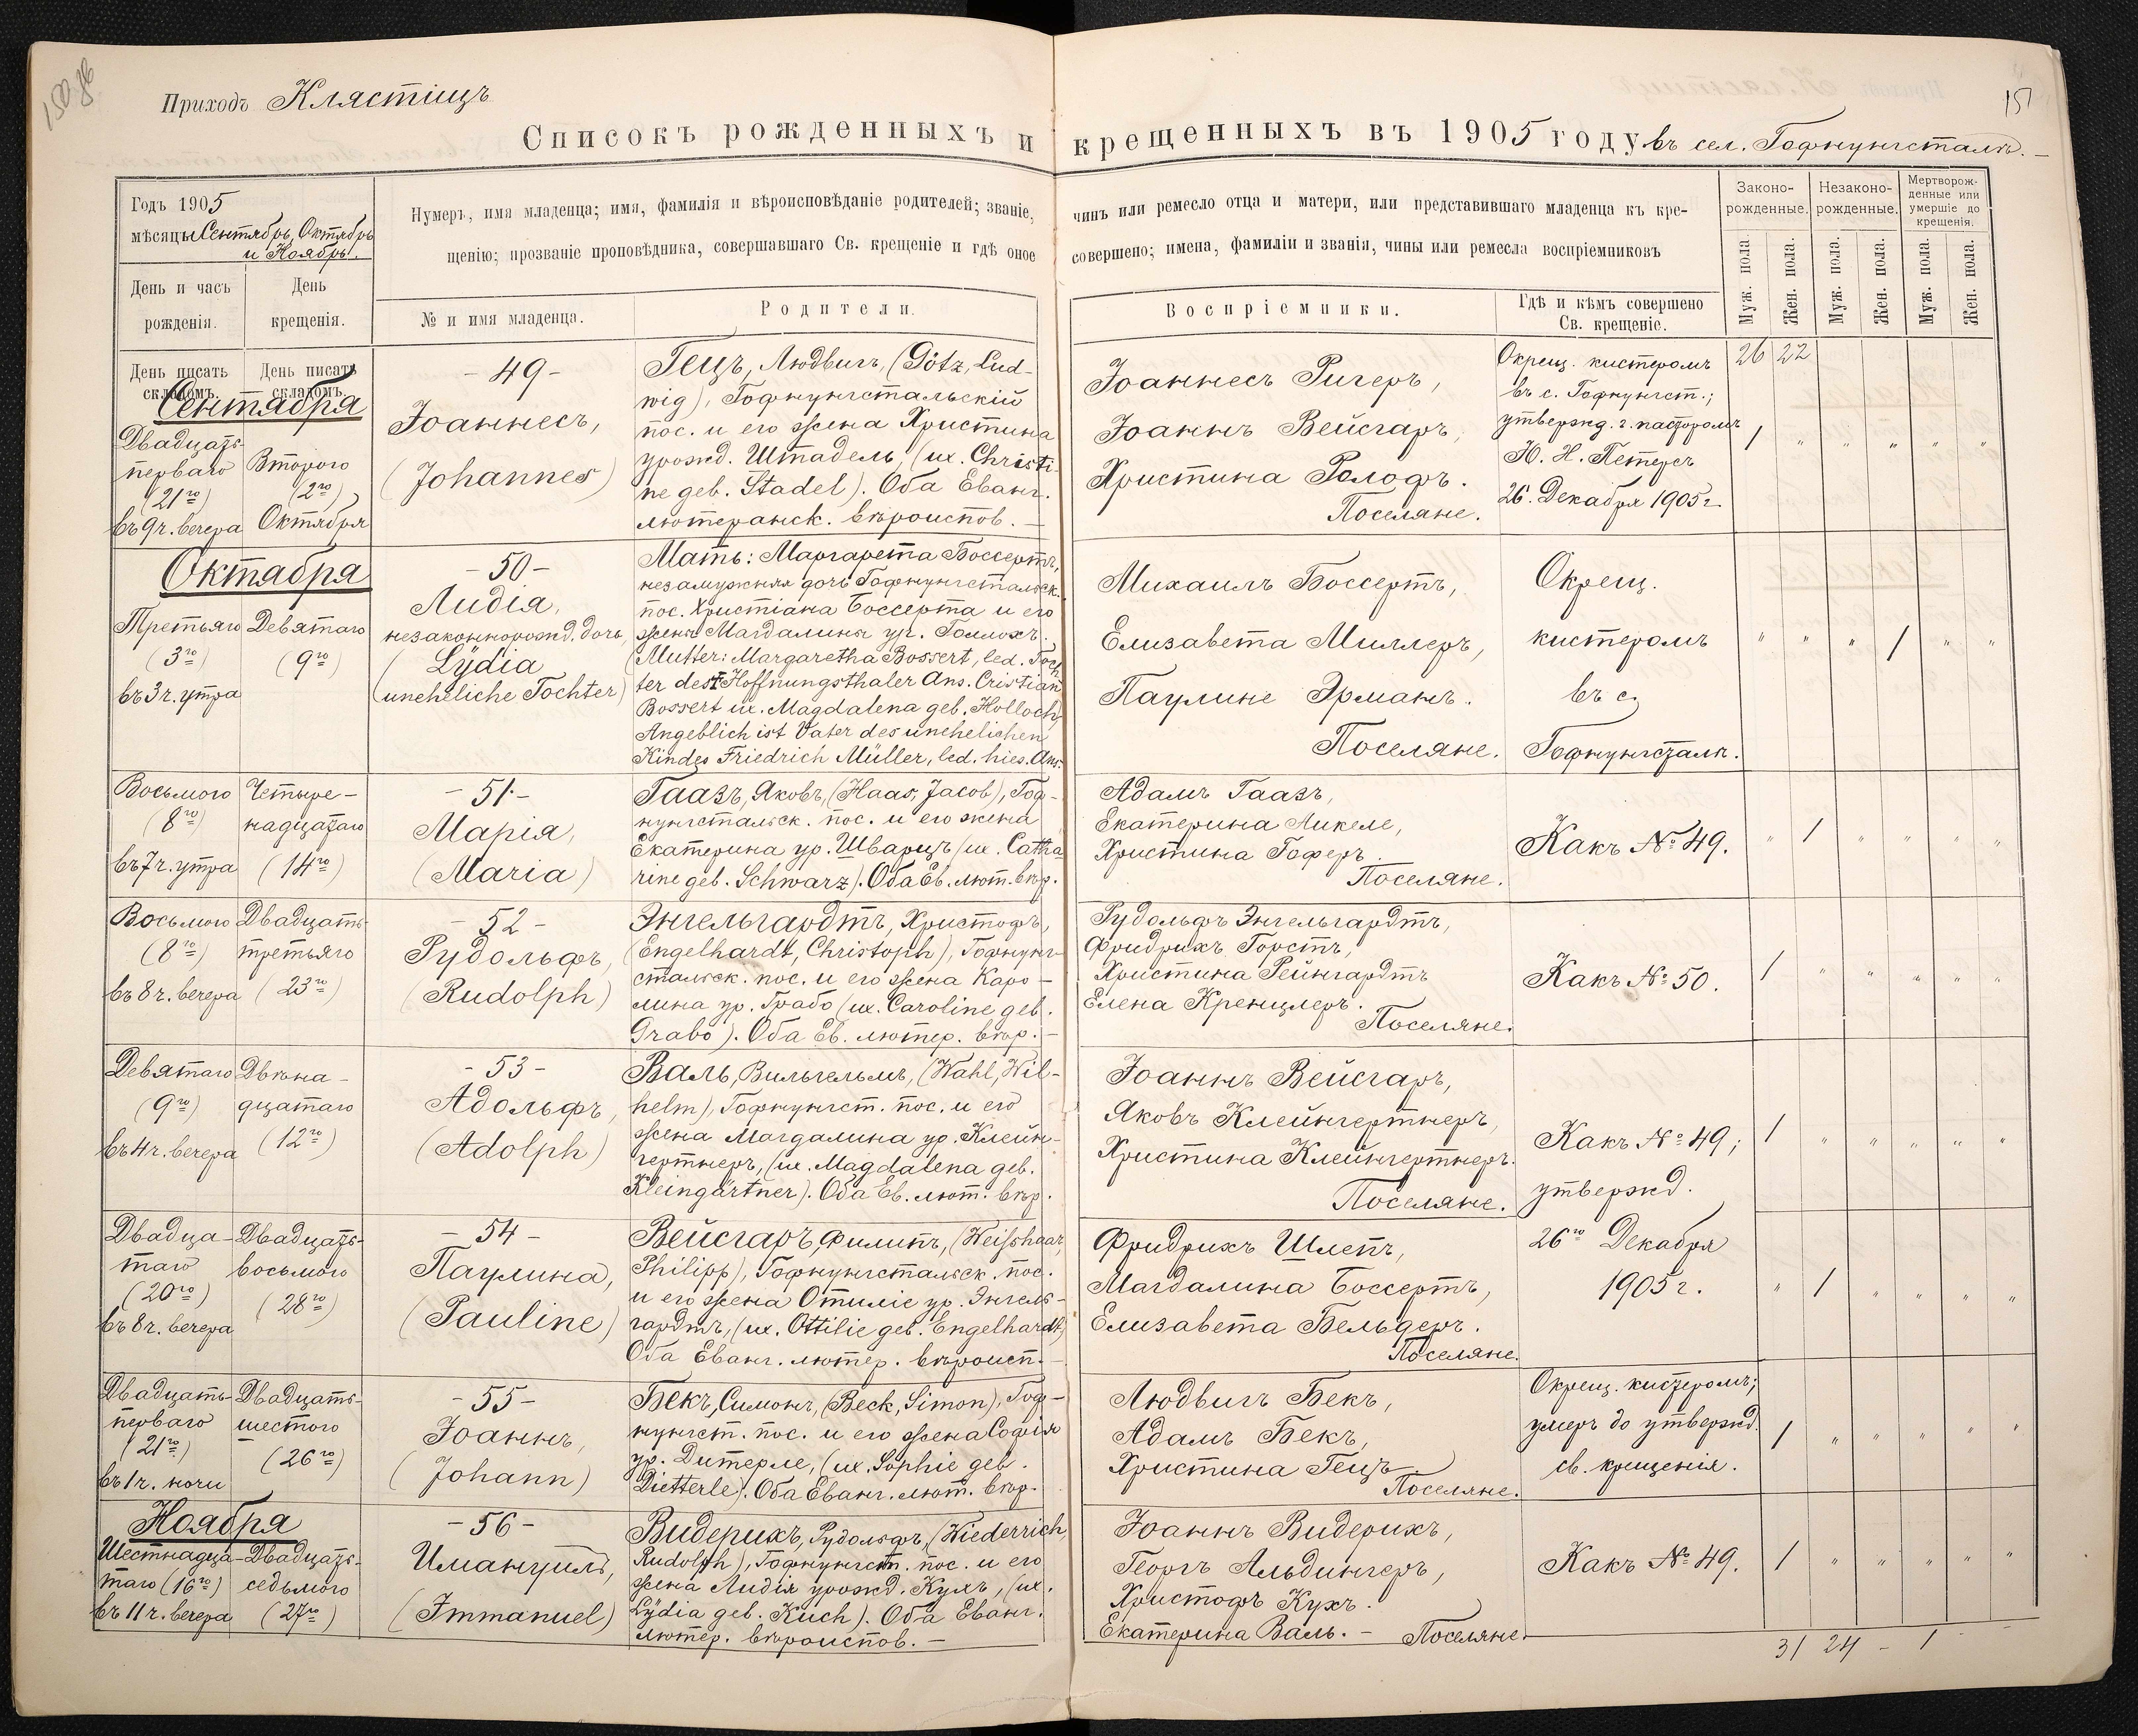 150 об
Приходъ Клястіцъ
Списокъ рожденныхъ и
Годъ 1905
мѣсяцы Сентябрь, Октябрь
и Ноябрь.
Нумеръ, имя младенца; имя, фамилія и вѣроисповѣданіе родителей; званіе,
щенію; прозваніе проповѣдника, совершавшаго Св. крещеніе и гдѣ оное
День и часъ
рожденія.
День
крещенія.
№ и имя младенца.
Родители.
День писать
складомъ.
День писать
складомъ.
Сентября
Двадцать-
перваго
(21го)
въ 9 ч. вечера
Второго
(2го)
Октября
- 49 -
Іоаннесъ,
(Johannes)
Гецъ, Людвигъ, (Götz, Lud-
wig), Гофнунгстальскій
пос. и его жена Христина
урожд. Штадель, (ux. Christi-
ne geb. Stadel). Оба Еванг.
лютеранск. вѣроиспов. —
Октября
Третьяго
(3го)
въ 3 ч. утра
Девятаго
(9го)
- 50 -
Лидія,
незаконнорожд. дочь,
(Lÿdia
uneheliche Tochter)
Мать: Маргарета Боссертъ,
незамужняя дочь Гофнунгстальск.
пос. Христіана Боссерта и его
жены Магдалины ур. Голлохъ.
(Mutter: Margaretha Bossert, led. Toch
ter des Hoffnungsthaler Ans. Cristian
Bossert ux. Magdalena geb. Holloch,
Angeblich ist Vater des unehelichen
Kindes Friedrich Müller, led. hies. Ans.
Восьмого
(8го)
въ 7 ч. утра
Четыре-
надцатаго
(14го)
- 51 -
Марія,
(Maria)
Гаазъ, Яковъ, (Haas, Jacob), Гоф-
нунгстальск. пос. и его жена
Екатерина ур. Шварцъ (ux. Catha
rine geb. Schwarz). Оба Ев. лют. вѣр.
Восьмого
(8го)
въ 8 ч. вечера
Двадцать-
третьяго
(23го)
- 52 -
Рудольфъ,
(Rudolph)
Энгельгардтъ, Христофъ,
(Engelhardt, Christoph), Гофнунг-
стальск. пос. и его жена Каро-
лина ур. Грабо (ux. Caroline geb.
Grabo). Оба Ев. лютер. вѣр. —
Девятаго
(9го)
въ 4 ч. вечера
Двѣна-
дцатаго
(12го)
- 53 -
Адольфъ,
(Adolph)
Валь, Вильгельмъ, (Wahl, Wil-
helm), Гофнунгст. пос. и его
жена Магдалина ур. Клейн-
гертнеръ, (ux. Magdalena geb.
Kleingärtner). Оба Ев. лют. вѣр.
Двадца-
таго
(20го)
въ 8 ч. вечера
Двадцать-
восьмого
(28го)
- 54 -
Паулина,
(Pauline)
Вейсгаръ, Филипъ, (Weisshaar,
Philipp), Гофнунгстальск. пос.
и его жена Отиліе ур. Энгель-
гардтъ, (ux. Ottilie geb. Engelhardt)
Оба Еванг. лютер. вѣроисп. —
Двадцать-
перваго
(21го)
въ 1 ч. ночи
Двадцать-
шестого
(26го)
- 55 -
Іоаннъ,
(Johann)
Бекъ, Симонъ, (Beck, Simon), Гоф-
нунгст. пос. и его жена Софія
ур. Дитерле, (ux. Sophie geb.
Dietterle). Оба Еванг. лют. вѣр.
Ноября
Шестнадца-
таго (16го)
въ 11 ч. вечера
Двадцать-
седьмого
(27го)
- 56 -
Имануилъ,
(Immanuel)
Видерихъ, Рудольфъ, (Wiederrich,
Rudolph), Гофнунгст. пос. и его
жена Лидія урожд. Кухъ, (ux.
Lÿdia geb. Kuch). Оба Еванг.
лютер. вѣроиспов. —
151
крещенныхъ въ 1905 году въ сел. Гофнунгсталь. —
чинъ или ремесло отца и матери, или представившаго младенца къ кре-
совершено; имена, фамиліи и званія, чины или ремесла воспріемниковъ
Воспріемники.
Гдѣ и кѣмъ совершено
Св. крещеніе.
Законо-
рожденные.
Незаконо-
рожденные.
Мертворож-
денные или
умершіе до
крещенія.
Муж. пола.
Жен. пола.
Муж. пола.
Жен. пола.
Муж. пола.
Жен. пола.
26 22
Іоаннесъ Ригеръ,
Іоаннъ Вейсгаръ,
ХристинаРолофъ.
Поселяне.
Окрещ. кистеромъ
въ с. Гофнунгст.;
утвержд. г. пасторомъ
Ю. Н. Петерсъ
26. Декабря 1905 г.
1 " " " " "
Михаилъ Боссертъ,
Елизавета Миллеръ,
Паулине Эрманъ.
Поселяне.
Окрещ.
кистеромъ
въ с.
Гофнунгсталь.
" " " 1 " "
Адамъ Гаазъ,
Екатерина Микеле,
Христина Гоферъ.
Поселяне.
Какъ № 49.
" 1 " " " "
Рудольфъ Энгельгардтъ,
Фридрихъ Горстъ,
Христина Рейнгардтъ
Елена Кренцлеръ.
Поселяне.
Какъ № 50.
1 " " " " "
Іоаннъ Вейсгаръ,
Яковъ Клейнгертнеръ,
Христина Клейнгертнеръ.
Поселяне.
Какъ № 49;
утвержд.
26го Декабря
1905 г.
1 " " " " "
Фридрихъ Шлепъ,
Магдалина Боссертъ,
Елизавета Бельцеръ.
Поселяне.
" 1 " " " "
Людвигъ Бекъ,
Адамъ Бекъ,
Христина Гецъ.
Поселяне.
Окрещ. кистеромъ;
умеръ до утвержд.
св. крещенія.
1 " " " " "
Іоаннъ Видерихъ,
Георгъ Альдингеръ,
Христофъ Кухъ.
Екатерина Валь. — Поселяне.
Какъ № 49.
1 " " " " "
31 24 - 1 - -